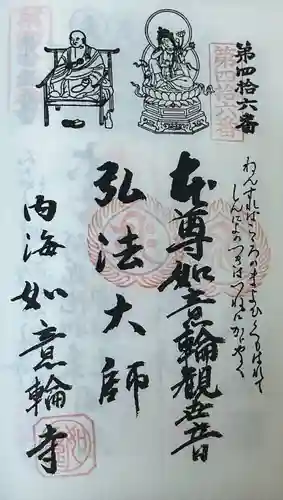 第四拾六番
第四十六番
わんすればこゝろのまよひくもはれて
しんによのつきはつねにかゞやく
本尊如意輪観世音
弘法大師
内海如意輪寺